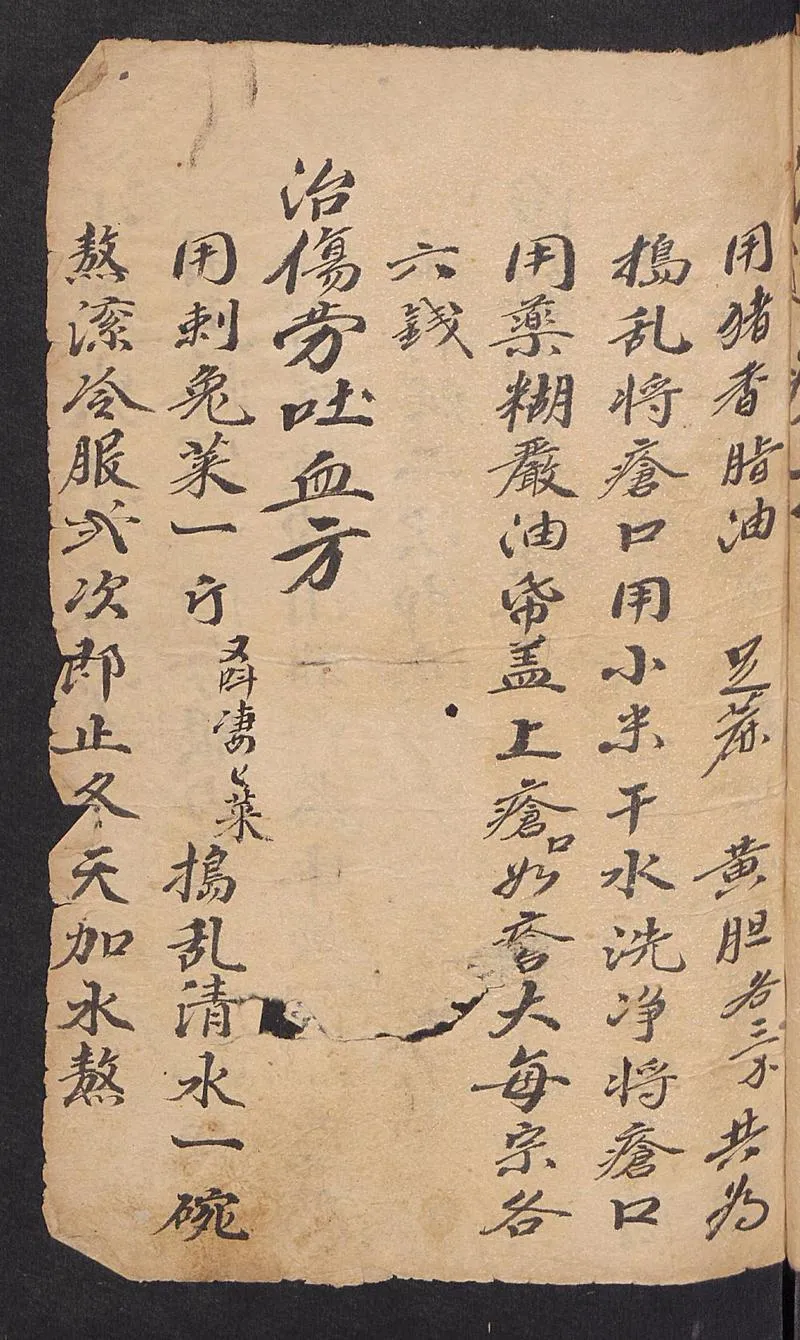 用猪香脂油 黄胆各三分共为
搗乱将瘡口用小米干水洗净将瘡口
用藥糊嚴油帋盖上瘡口如瘡大每宗各
六錢
治傷劳吐血方
用刺兔菜一斤 菜 搗乱清水一碗
熬滚冷服弍次即止冬天加水熬